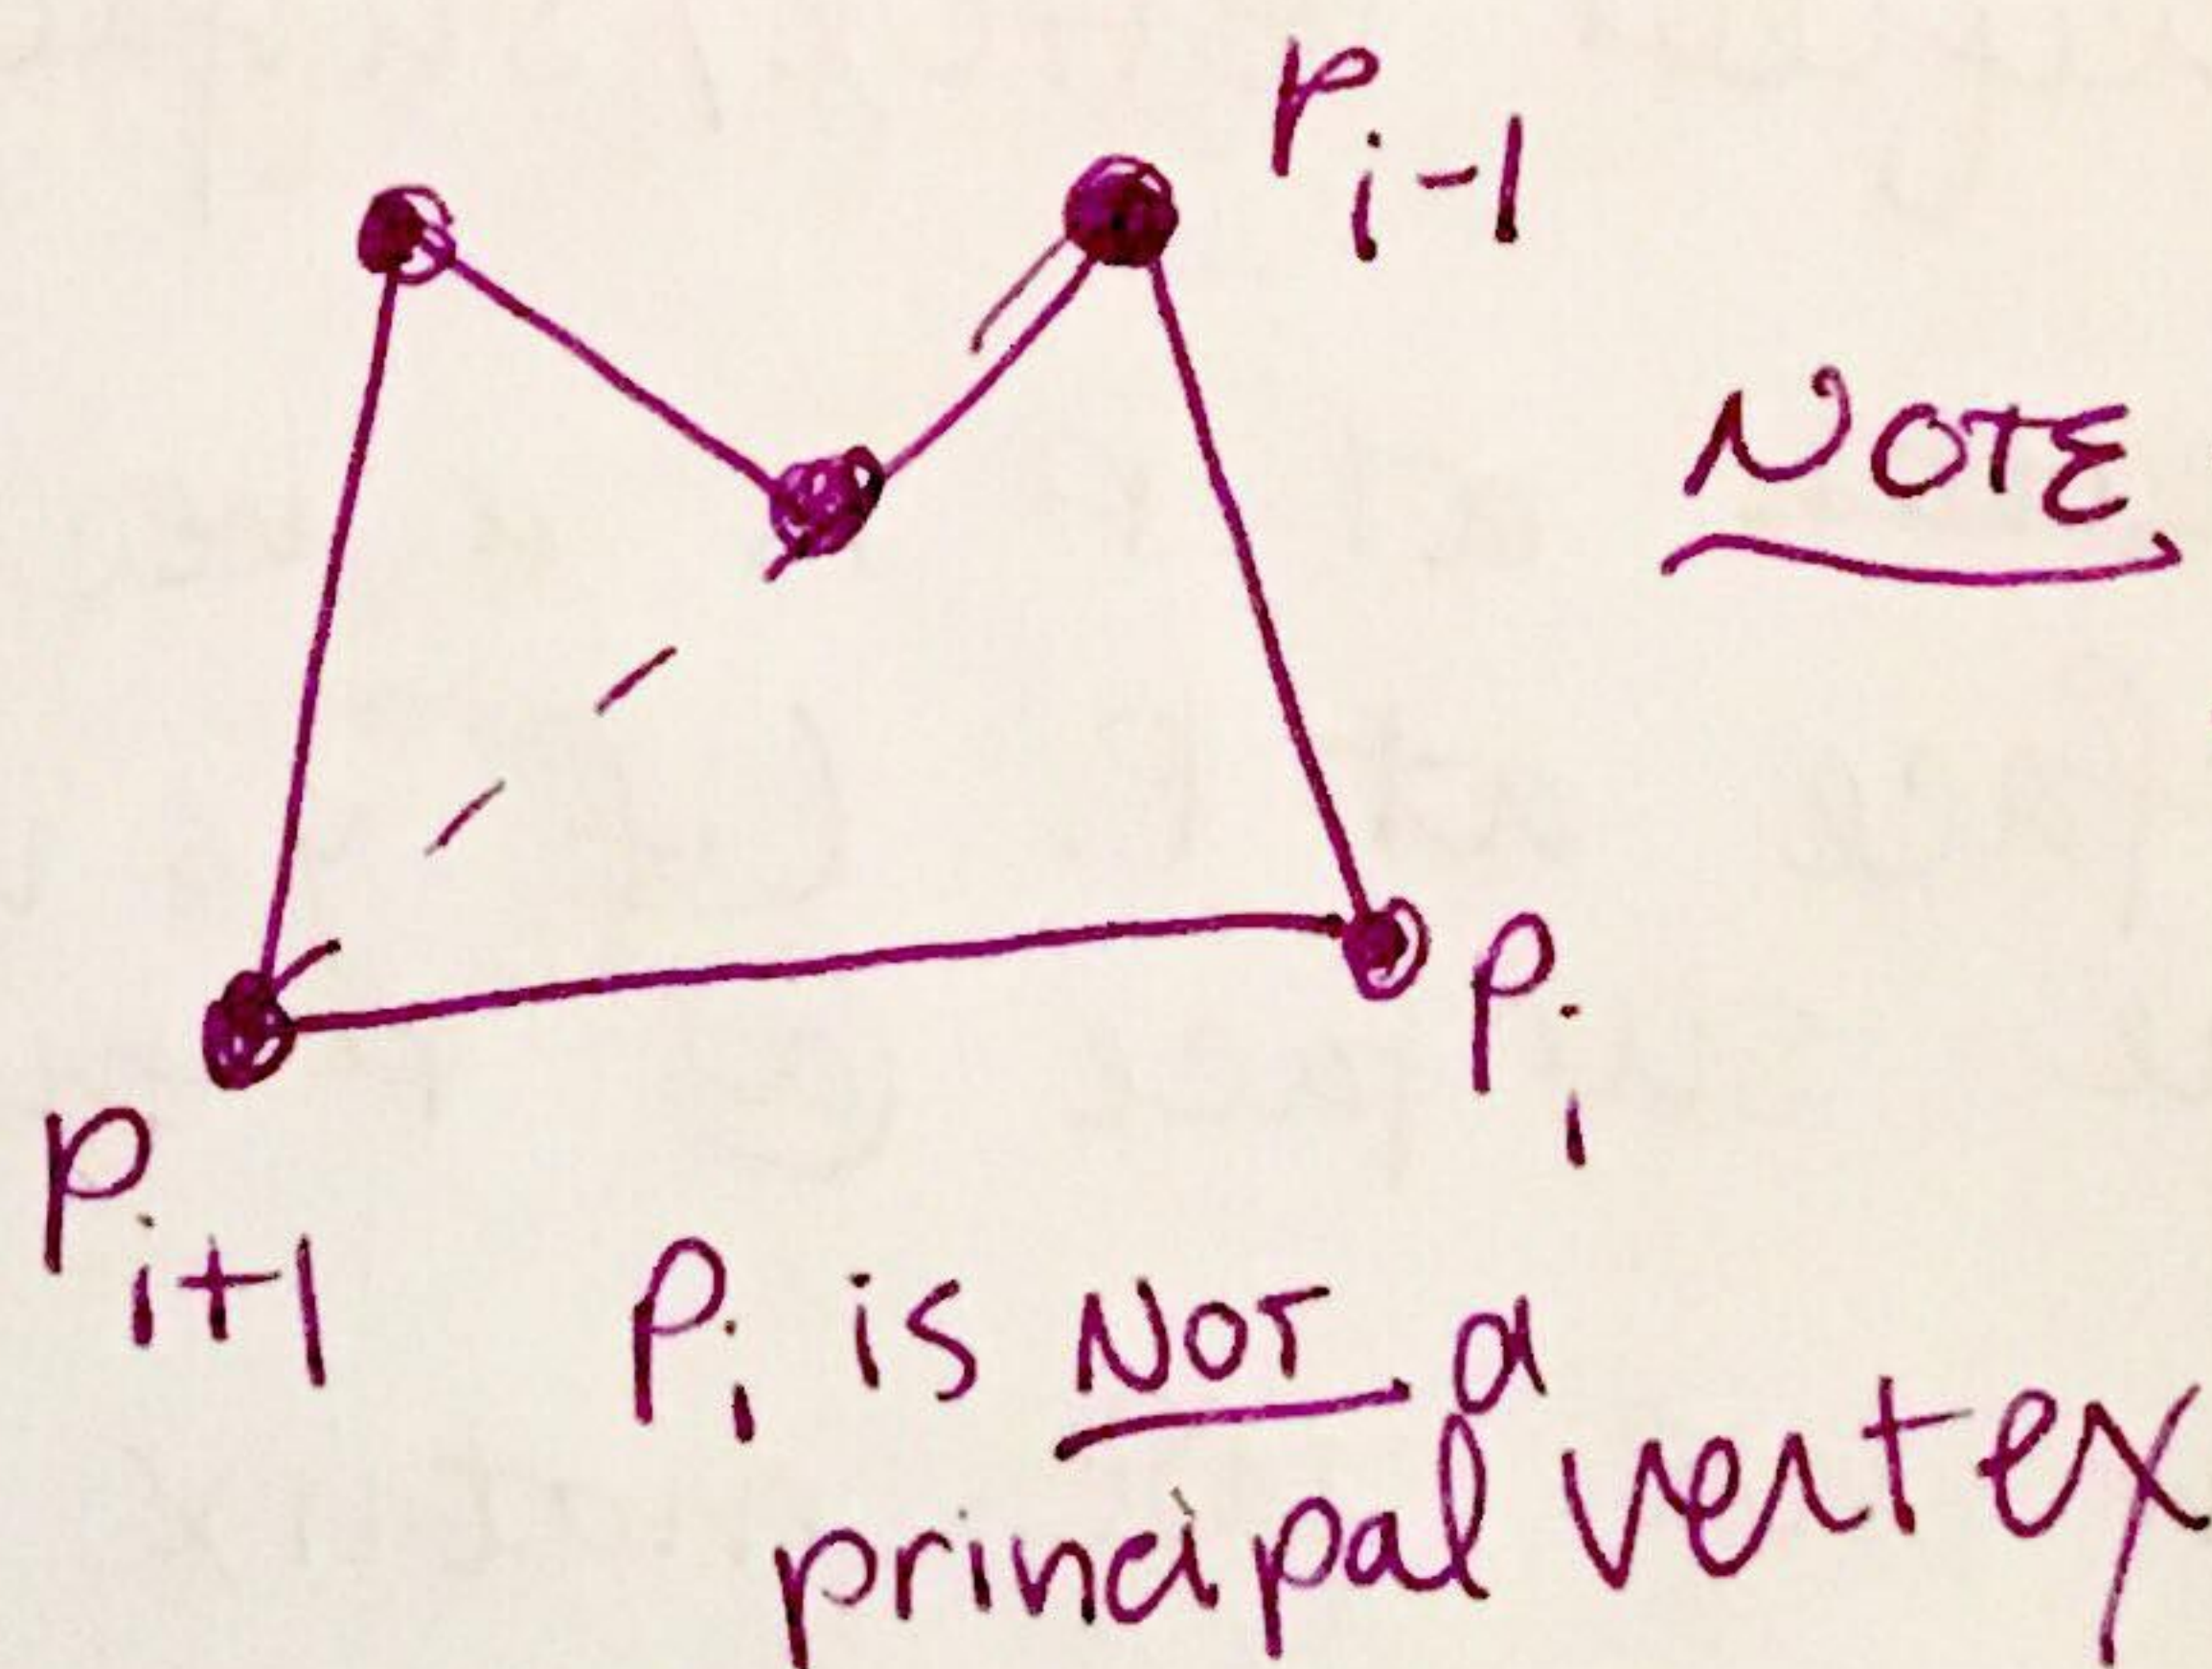 p_{i-1}
NOTE
p_i
p_{i+1}
p_i is NOT a
principal vertex